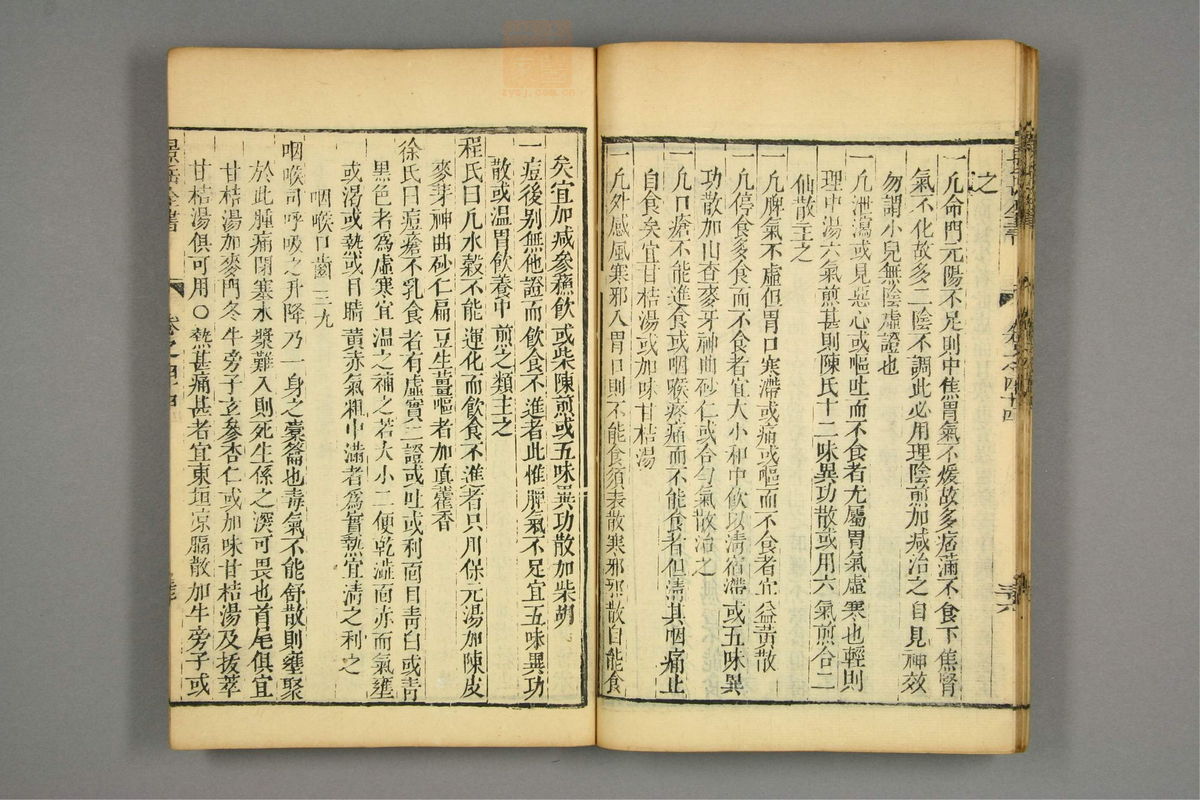 之
一凡命門元陽不足則中焦胃氣不煖故多痞滿不食下焦腎
氣不化故多二陰不調此必用理陰煎加減治之自見神效
勿謂小兒無陰虛證也
一凡泄瀉或見惡心或嘔吐而不食者尤屬胃氣虛寒也輕則
理中湯六氣煎甚則陳氏十二味異功散或用六氣煎合二
仙散主之
一凡脾氣不虛但胃口寒滯或痛或嘔而不食者宜益黃散
一凡停食多食而不食者宜大小和中飲以清宿滯或五味異
功散加山查麥牙神曲砂仁或合勻氣散治之
一凡口瘡不能進食或咽喉疼痛而不能食者但清其咽痛止
自食矣宜甘桔湯或加味甘桔湯
一凡外感風寒邪入胃口則不能食須表散寒邪邪散自能食
矣宜加減參蘇飲或柴陳煎或五味異功散加柴胡
一痘後別無他證而飲食不進者此惟脾氣不足宜五味異功
散或溫胃飲養中煎之類主之
程氏曰凡水穀不能運化而飲食不進者只用保元湯加陳皮
麥芽神曲砂仁扁豆生薑嘔者加真藿香
徐氏曰痘瘡不乳食者有虛實二證或吐或利面目青白或青
黑色者爲虛寒宜溫之補之若大小二便乾澁面赤而氣壅
或渴或熱或目睛黃赤氣粗中滿者爲實熱宜清之利之
咽喉口齒三九
咽喉司呼吸之升降乃一身之橐籥也毒氣不能舒散則壅聚
於此腫痛閉塞水漿難入則死生係之深可畏也首尾俱宜
甘桔湯加麥門冬牛旁子玄參杏仁或加味甘桔湯及拔萃
甘桔湯俱可用○熱甚痛甚者宜東垣涼膈散加牛旁子或
景岳全書
卷之四十四